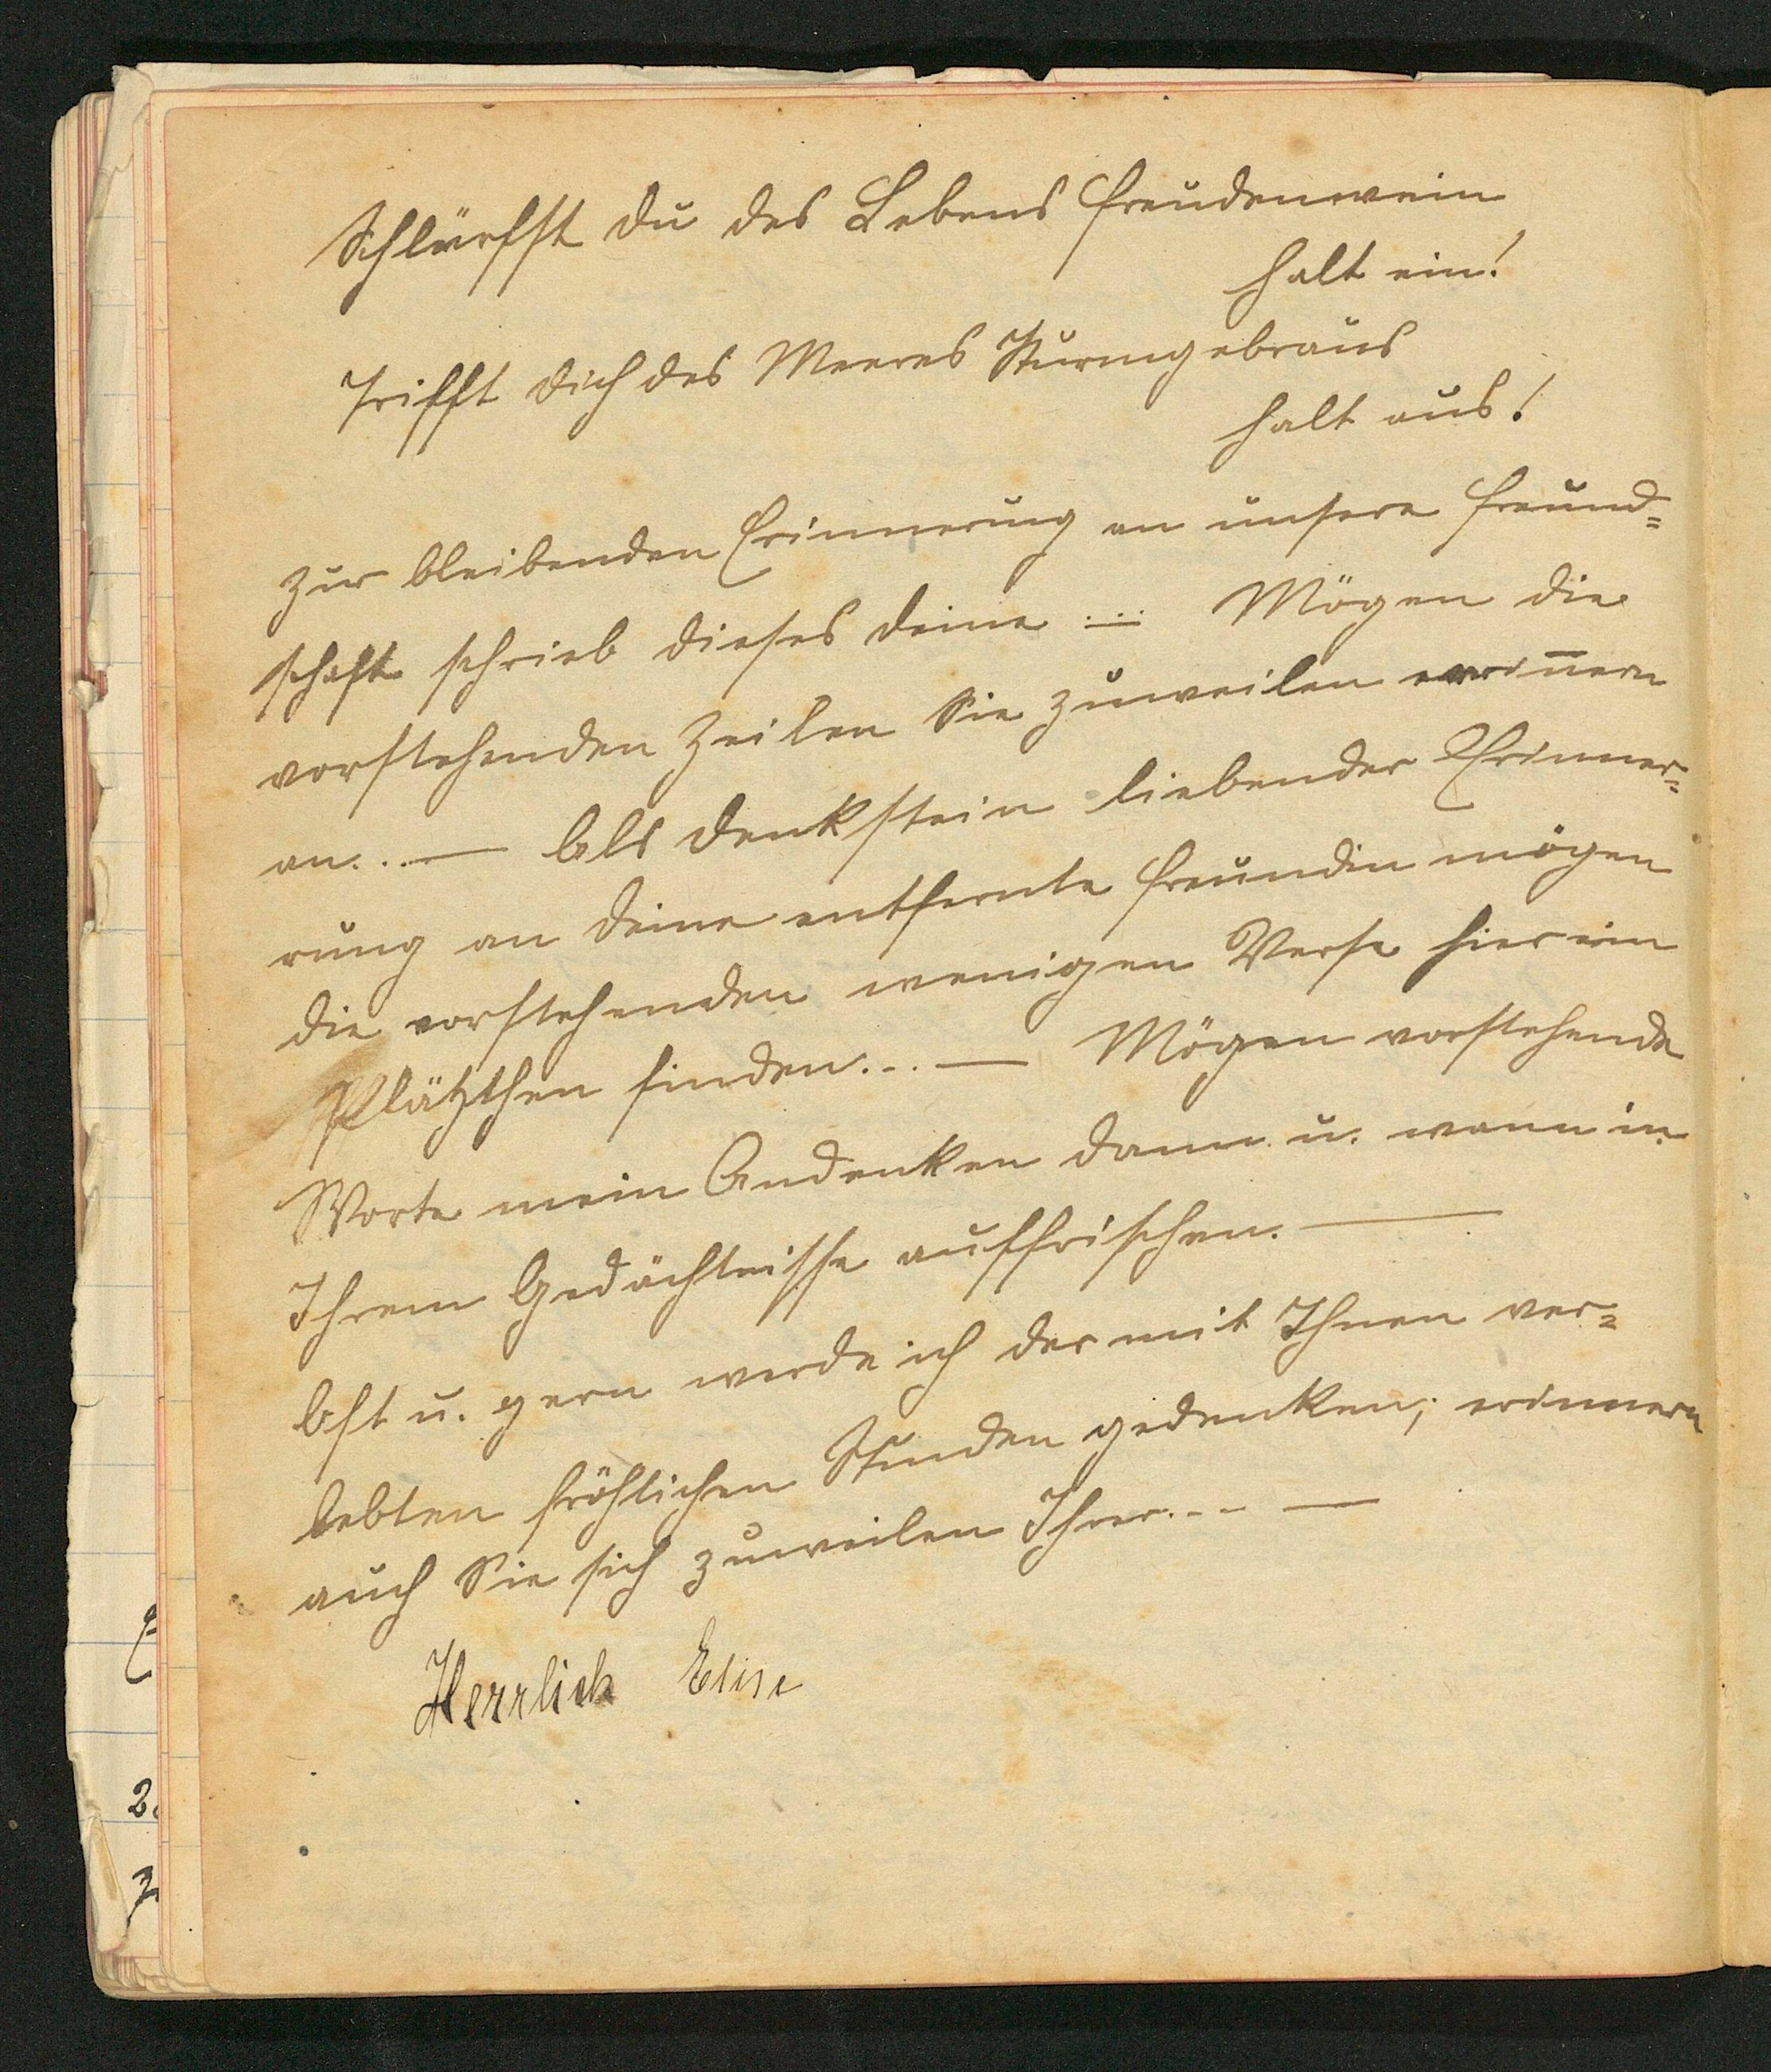 Schlürfst du des Lebens Freudenwein
halt ein!
Trifft dich des Meeres Sturmgebraus
halt aus!
Zur bleibenden Erinnerung an unsere Freund-
schaft schrieb dieses deine ... Mögen die
vorstehenden Zeilen Sie zuweilen erinnern
an... — Als Denkstein liebender Erinner-
rung an deine entfernte Freundin mögen
die vorstehenden wenigen Verse hier ein
Plätzchen finden... — Mögen vorstehende
Worte mein Andenken dann u. wann in
Ihrem Gedächtnisse auffrischen. —
Oft u. gern werde ich der mit Ihnen ver-
lebten fröhlichen Stunden gedenken; erinnern
auch Sie sich zuweilen Ihrer... —
Herrlich Elise
2.
3.